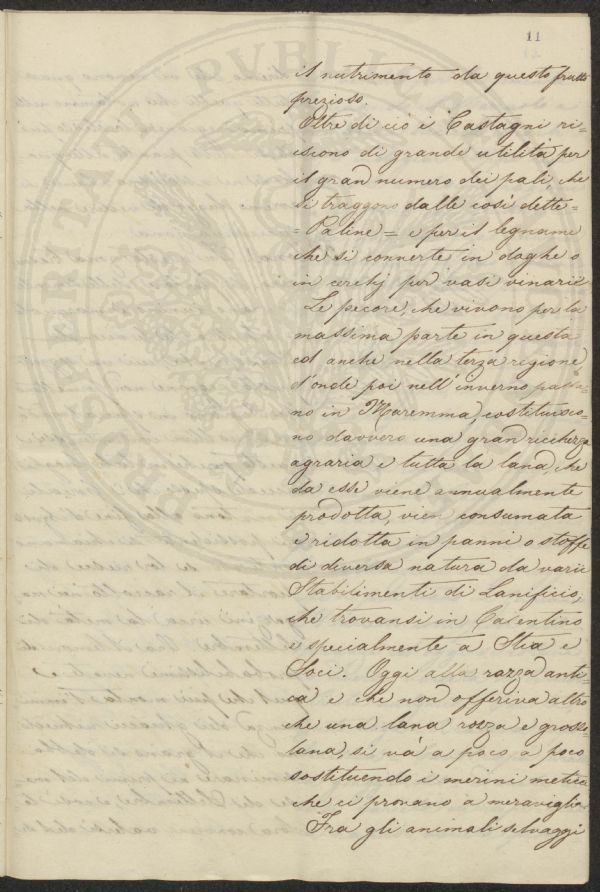 11
il nutrimento da questo frutto
prezioso.
Oltre di ciò i Castagni ri=
escono di grande utilità per
il gran numero dei pali, che
si traggono dalle così dette=
=Paline= e per il legname
che si connerte in doghe o
in cerchj per vasi vinarii
Le pecore, che vivono per la
massima parte in questa
ed anche nella terza regione
d'onde poi nell'inverno passa=
no in Maremma, costituisco=
no davvero una gran ricchezza
agraria e tutta la lana, che
da esse viene annualmente
prodotta, vien consumata
e ridotta in panni o stoffe
di diversa natura da varii
Stabilimenti di Lanificio,
che trovansi in Casentino
e specialmente a Stia e
Soci. Oggi alla razza anti=
ca e che non offeriva altro
che una lana rozza e grosso=
lana, si và a poco a poco
sostituendo i merini meticci
che ci provano a meraviglia.
Fra gli animali selvaggi